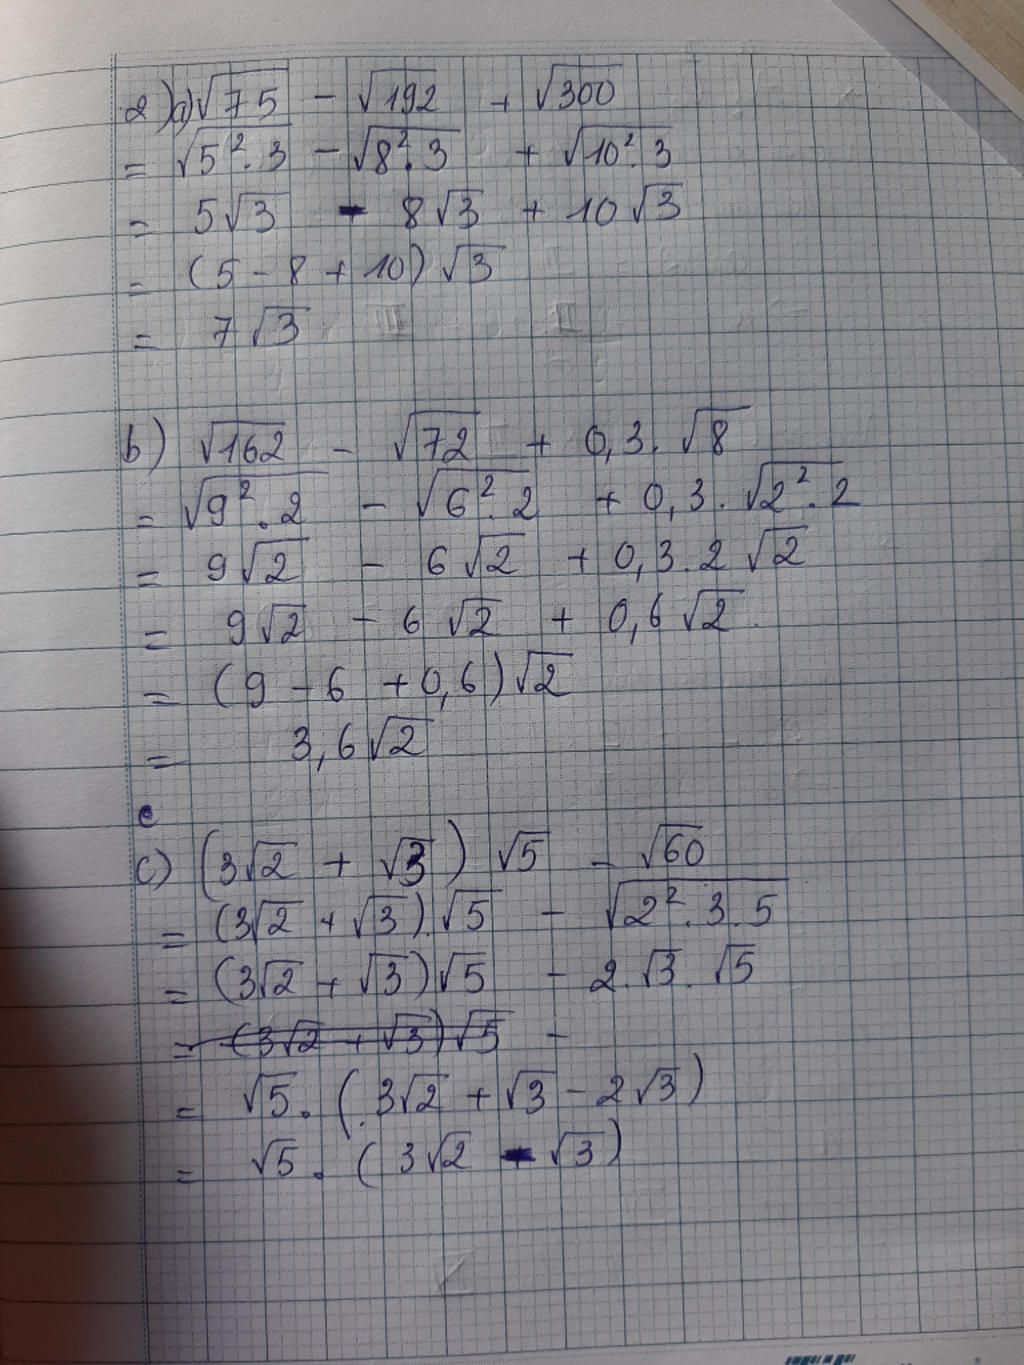 2)a) √75 - √192 + √300
= √5².3 - √8².3 + √10².3
= 5√3 - 8√3 + 10√3
= (5 - 8 + 10)√3
= 7√3
b) √162 - √72 + 0,3.√8
= √9².2 - √6².2 + 0,3.√2².2
= 9√2 - 6√2 + 0,3.2√2
= 9√2 - 6√2 + 0,6√2
= (9 - 6 + 0,6)√2
= 3,6√2
c
c) (3√2 + √3)√5 - √60
= (3√2 + √3).√5 - √2².3.5
= (3√2 + √3)√5 - 2.√3.√5
= (3√2 + √3)√5 -
= √5.(3√2 + √3 - 2√3)
= √5.(3√2 - √3)